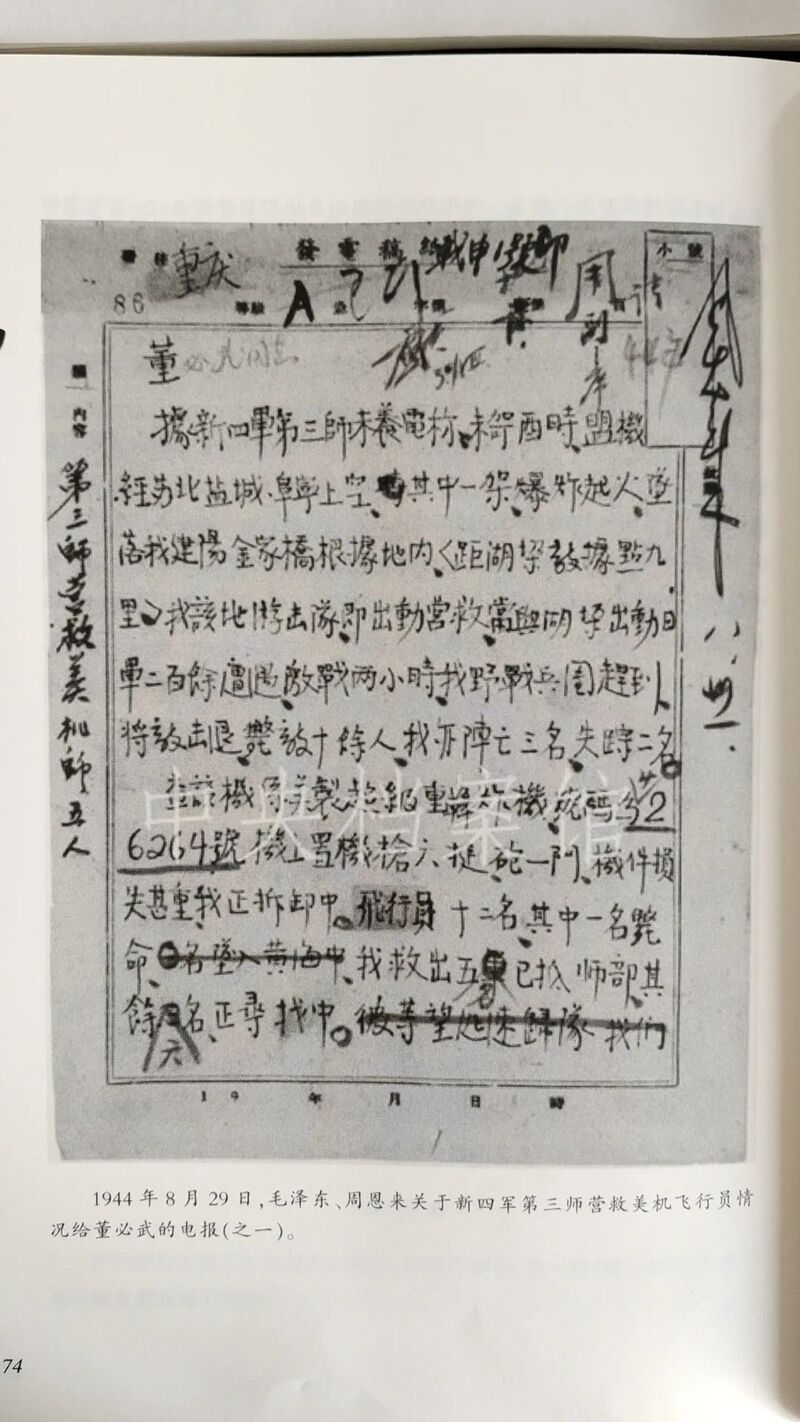 重庆
發電稿
86
等級
A
周
董必武同志
據新四軍第三師未養電称、未哿酉時、盟機
經苏北盐城、阜寧上空、其中一架、爆炸起火、墜
落我建陽金家橋根據地内、〈距湖垜敌據點九
里〉、我該地游击隊、即出動营救、當與湖垜出動日
軍二百餘遭遇、激戰两小時、我野戰兵团趕到、
将敌击退、斃敌十餘人、我亦陣亡三名、失踪二名。
查該機係美製超級重轟炸機、號碼為2
6264號、機上置機槍六挺、砲一門、機件損
失甚重、我正拆卸中。飛行員十二名、其中一名斃
命、名墜入黄海中、我救出五名已抵师部、其
餘六名、正尋找中。彼等望迅速歸隊、我們
内容
第三師营救美机師五人
八、卅一、
19 年 月 日 時
中央档案馆
1944 年 8 月 29 日,毛泽东、周恩来关于新四军第三师营救美机飞行员情
况给董必武的电报(之一)。
74